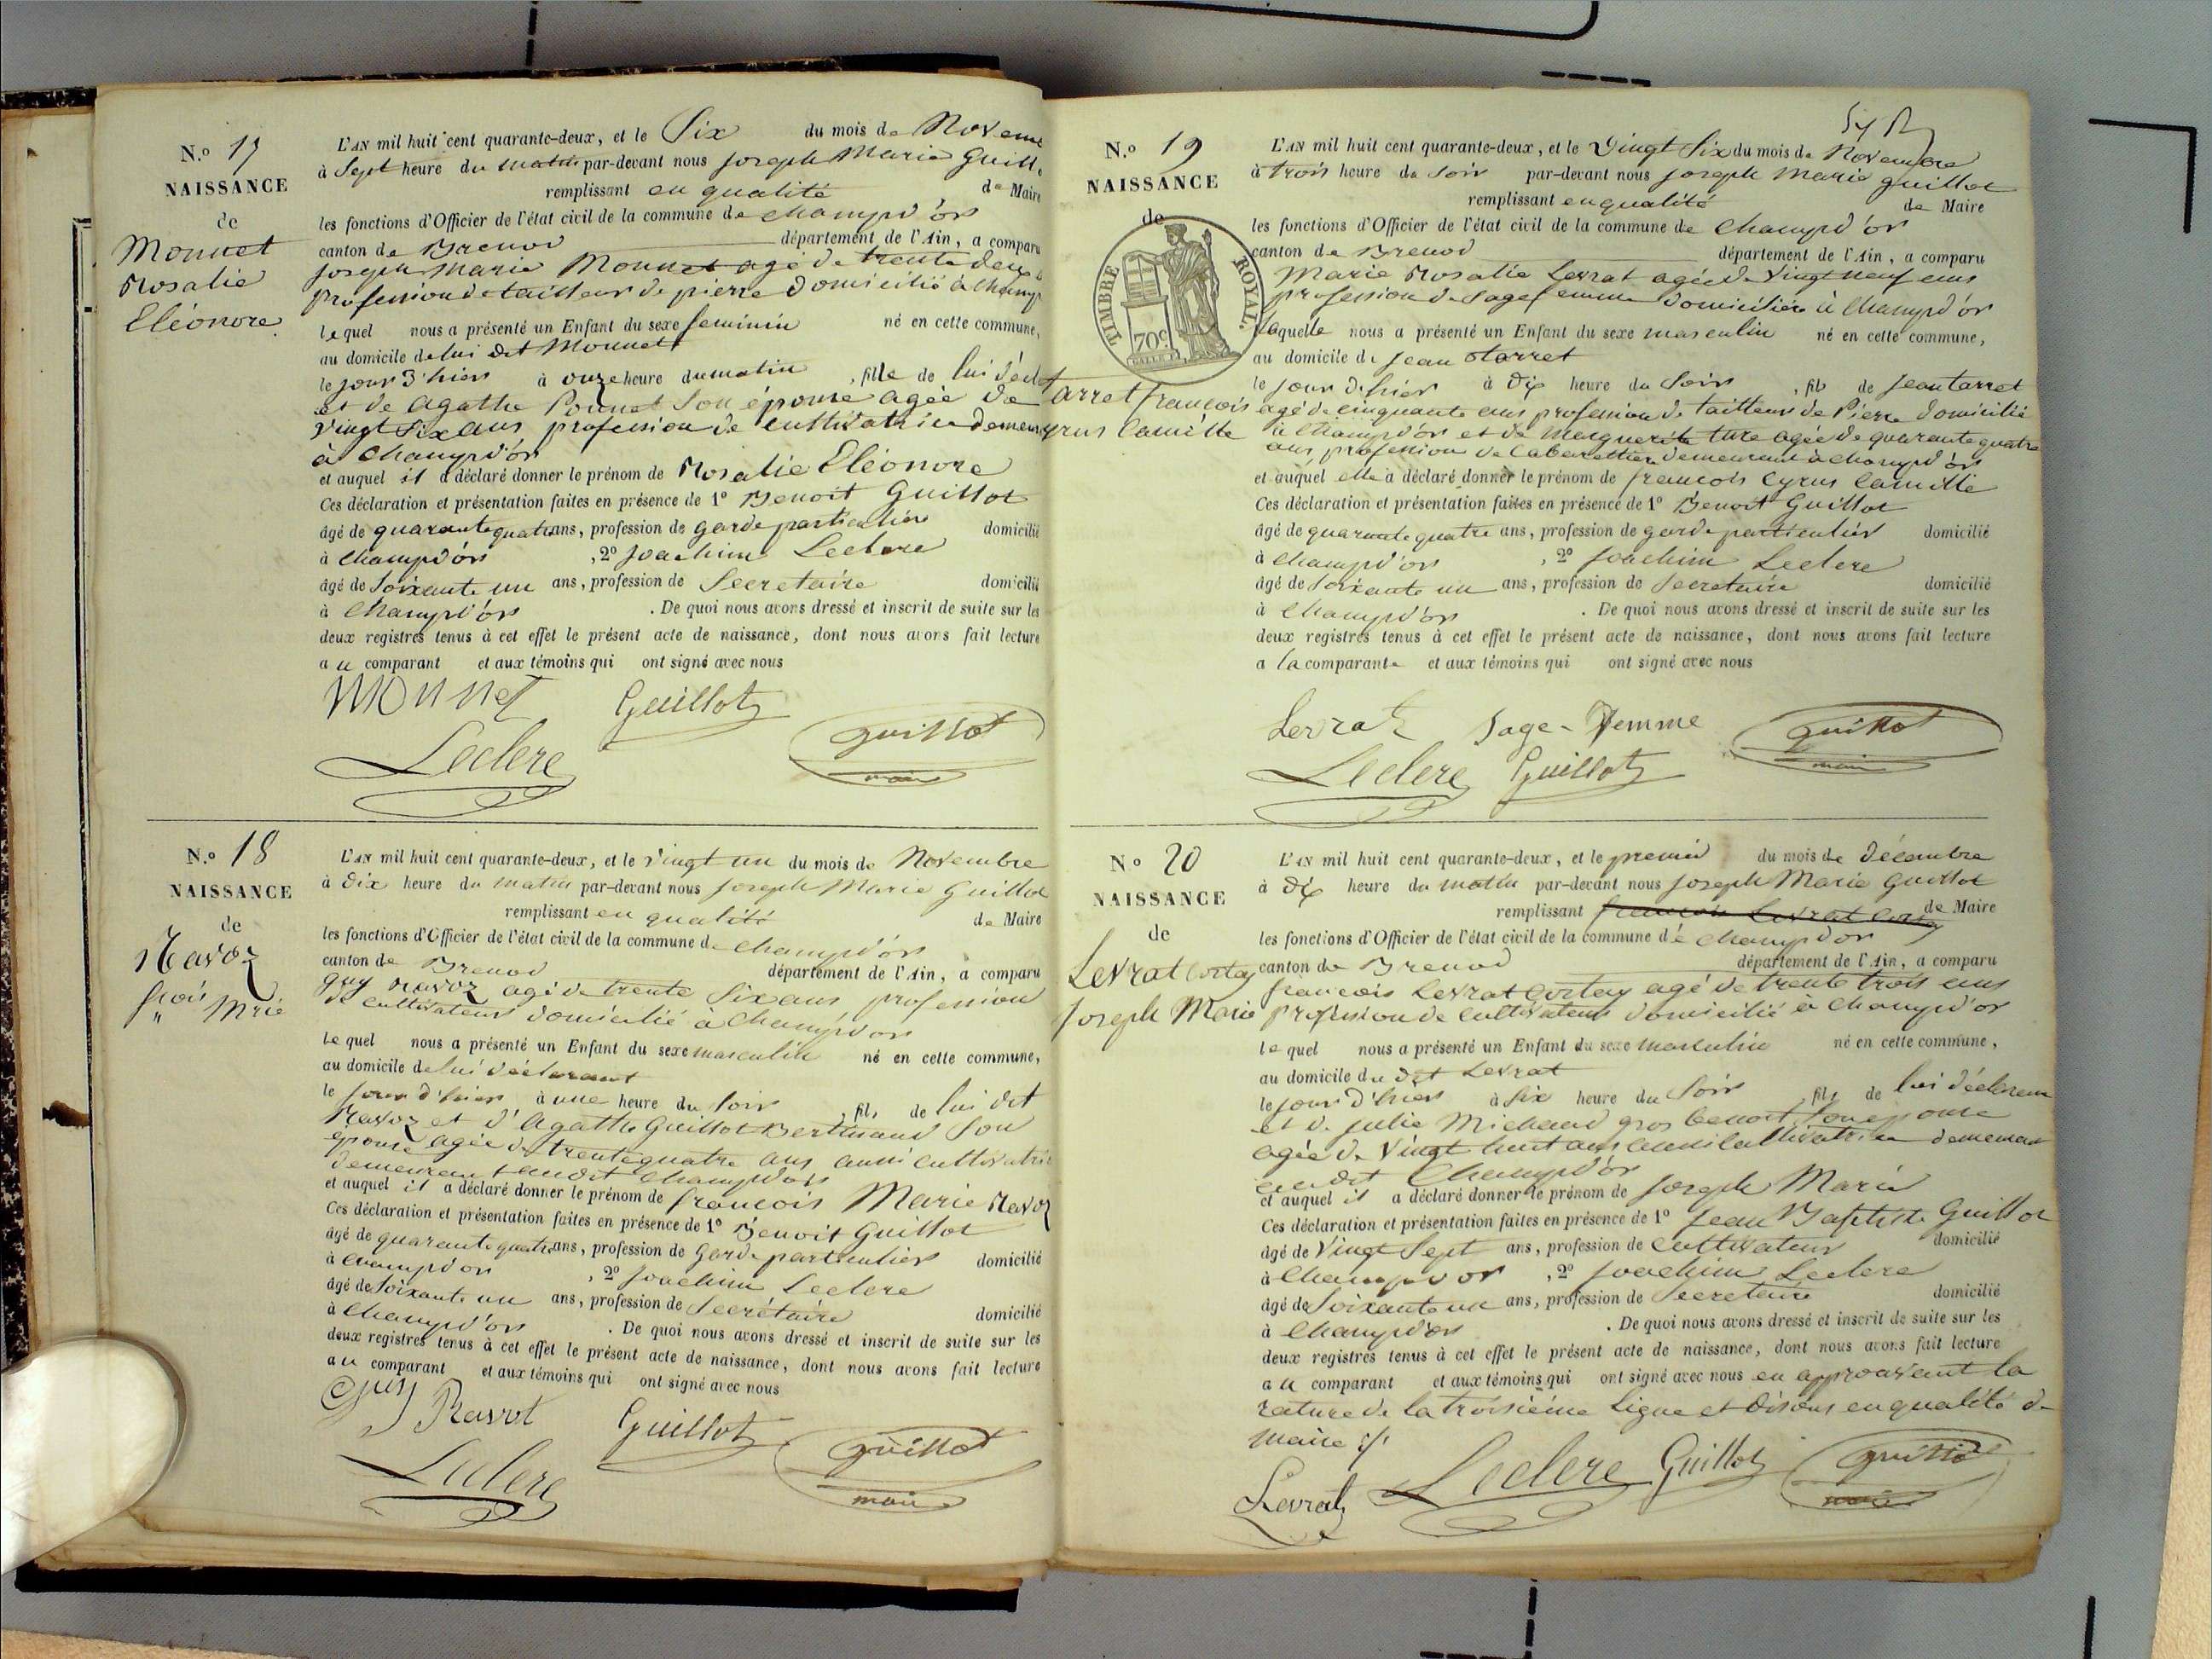 N.o 17
NAISSANCE
de
Monnet
Rosalie
Eléonore.
L'AN mil huit cent quarante-deux, et le Six du mois de Novem
à Sept heure du matin par-devant nous joseph Marie Guill
remplissant en qualité de Maire
les fonctions d'Officier de l'état civil de la commune de champd'ôr
canton de Brenod département de l'Ain, a comparu
joseph Marie Monnet agé de trente deux
profession de tailleur de pierre domicilié à champ
lequel nous a présenté un Enfant du sexe feminin né en cette commune,
au domicile de lui dit Monnet
le jour d'hier à onze heure du matin , fille de lui décl
et de Agathe Ponnet Son épouse agée de
vingt Six ans profession de cultivatrice demeur
à champd'ôr
et auquel il a déclaré donner le prénom de Rosalie Eléonore
Ces déclaration et présentation faites en présence de 1o Benoit Guillot
âgé de quarante quatre ans, profession de garde particulier domicilié
à champd'ôr , 2o joachim Leclere
âgé de Soixante un ans, profession de Secretaire domicilié
à Champd'ôr . De quoi nous avons dressé et inscrit de suite sur les
deux registres tenus à cet effet le présent acte de naissance, dont nous avons fait lecture
au comparant et aux témoins qui ont signé avec nous
Monnet Guillot
Leclere guillot
maire
N.o 18
NAISSANCE
de
Ravoz
frois
" Mrie
L'AN mil huit cent quarante-deux, et le vingt un du mois de Novembre
à dix heure du matin par-devant nous joseph Marie Guillot
remplissant en qualité de Maire
les fonctions d'Officier de l'état civil de la commune de champd'ôr
canton de Brenod département de l'Ain, a comparu
guy Ravoz agé de trente Six ans profession
de cultivateur domicilié à champd'or
lequel nous a présenté un Enfant du sexe masculin né en cette commune,
au domicile de lui déclarant
le jour d'hier à une heure du soir , fils de lui dit
Ravoz et d'Agathe Guillot Bertrand Son
epouse agée de trente quatre ans aussi cultivatrice
demeurant audit champd'or
et auquel il a déclaré donner le prénom de francois Marie Ravoz
Ces déclaration et présentation faites en présence de 1o Benoit Guillot
âgé de quarante quatre ans, profession de Garde particulier domicilié
à champd'or , 2o joachim Leclere
âgé de Soixante un ans, profession de Secrétaire domicilié
à Champd'or . De quoi nous avons dressé et inscrit de suite sur les
deux registres tenus à cet effet le présent acte de naissance, dont nous avons fait lecture
au comparant et aux témoins qui ont signé avec nous
Guy Ravot Guillot
Leclere guillot
maire
N.o 19
NAISSANCE
de
TIMBRE ROYAL.
70c
tarret francois
Cyrus Camille
L'AN mil huit cent quarante-deux, et le vingt Six du mois de Novembre
à trois heure du Soir par-devant nous joseph Marie guillot
remplissant en qualité de Maire
les fonctions d'Officier de l'état civil de la commune de Champd'ôr
canton de Brenod département de l'Ain, a comparu
Marie Rosalie Levrat agée de vingt neuf ans
profession de Sage femme domiciliée à Champd'ôr
laquelle nous a présenté un Enfant du sexe masculin né en cette commune,
au domicile de jean tarret
le jour d'hier à dix heure du Soir , fils de jean tarret
agé de cinquante ans profession de tailleur de Pierre domicilié
à Champd'or et de Marguerite ture agée de quarante quatre
ans, profession de Cabarettiere demeurant à champd'ôr
et auquel elle a déclaré donner le prénom de francois Cyrus Camille
Ces déclaration et présentation faites en présence de 1o Benoit Guillot
âgé de quarante quatre ans, profession de garde particulier domicilié
à champd'or , 2o joachim Leclere
âgé de Soixante un ans, profession de Secretaire domicilié
à Champd'ôr . De quoi nous avons dressé et inscrit de suite sur les
deux registres tenus à cet effet le présent acte de naissance, dont nous avons fait lecture
a la comparante et aux témoins qui ont signé avec nous
Levrat Sage-Femme guillot
maire
Leclere Guillot
No 20
NAISSANCE
de
Levrat Cortay
Joseph Marie
L'AN mil huit cent quarante-deux, et le premier du mois de décembre
à dix heure du matin par-devant nous joseph Marie guillot
remplissant francois Levrat Cortay de Maire
les fonctions d'Officier de l'état civil de la commune de champdor
canton de Brenod département de l'Ain, a comparu
francois Levrat Cortay agé de trente trois ans
profession de cultivateur domicilié à champd'or
lequel nous a présenté un Enfant du sexe masculin né en cette commune,
au domicile du dit Levrat
le jour d'hier à Six heure du Soir , fils de lui déclarant
et de julie Michaud gros benoit Son epouse
agée de vingt huit ans aussi cultivatrice demeurant
audit Champd'ôr
et auquel il a déclaré donner le prénom de joseph Marie
Ces déclaration et présentation faites en présence de 1o jean Baptiste Guillot
âgé de vingt Sept ans, profession de cultivateur domicilié
à Champd'or , 2o joachim Leclere
âgé de Soixante un ans, profession de Secretaire domicilié
à Champd'or . De quoi nous avons dressé et inscrit de suite sur les
deux registres tenus à cet effet le présent acte de naissance, dont nous avons fait lecture
au comparant et aux témoins qui ont signé avec nous en approuvant la
rature de la troisième ligne et disons en qualité de
maire
Levrat Leclere Guillot guillot
maire